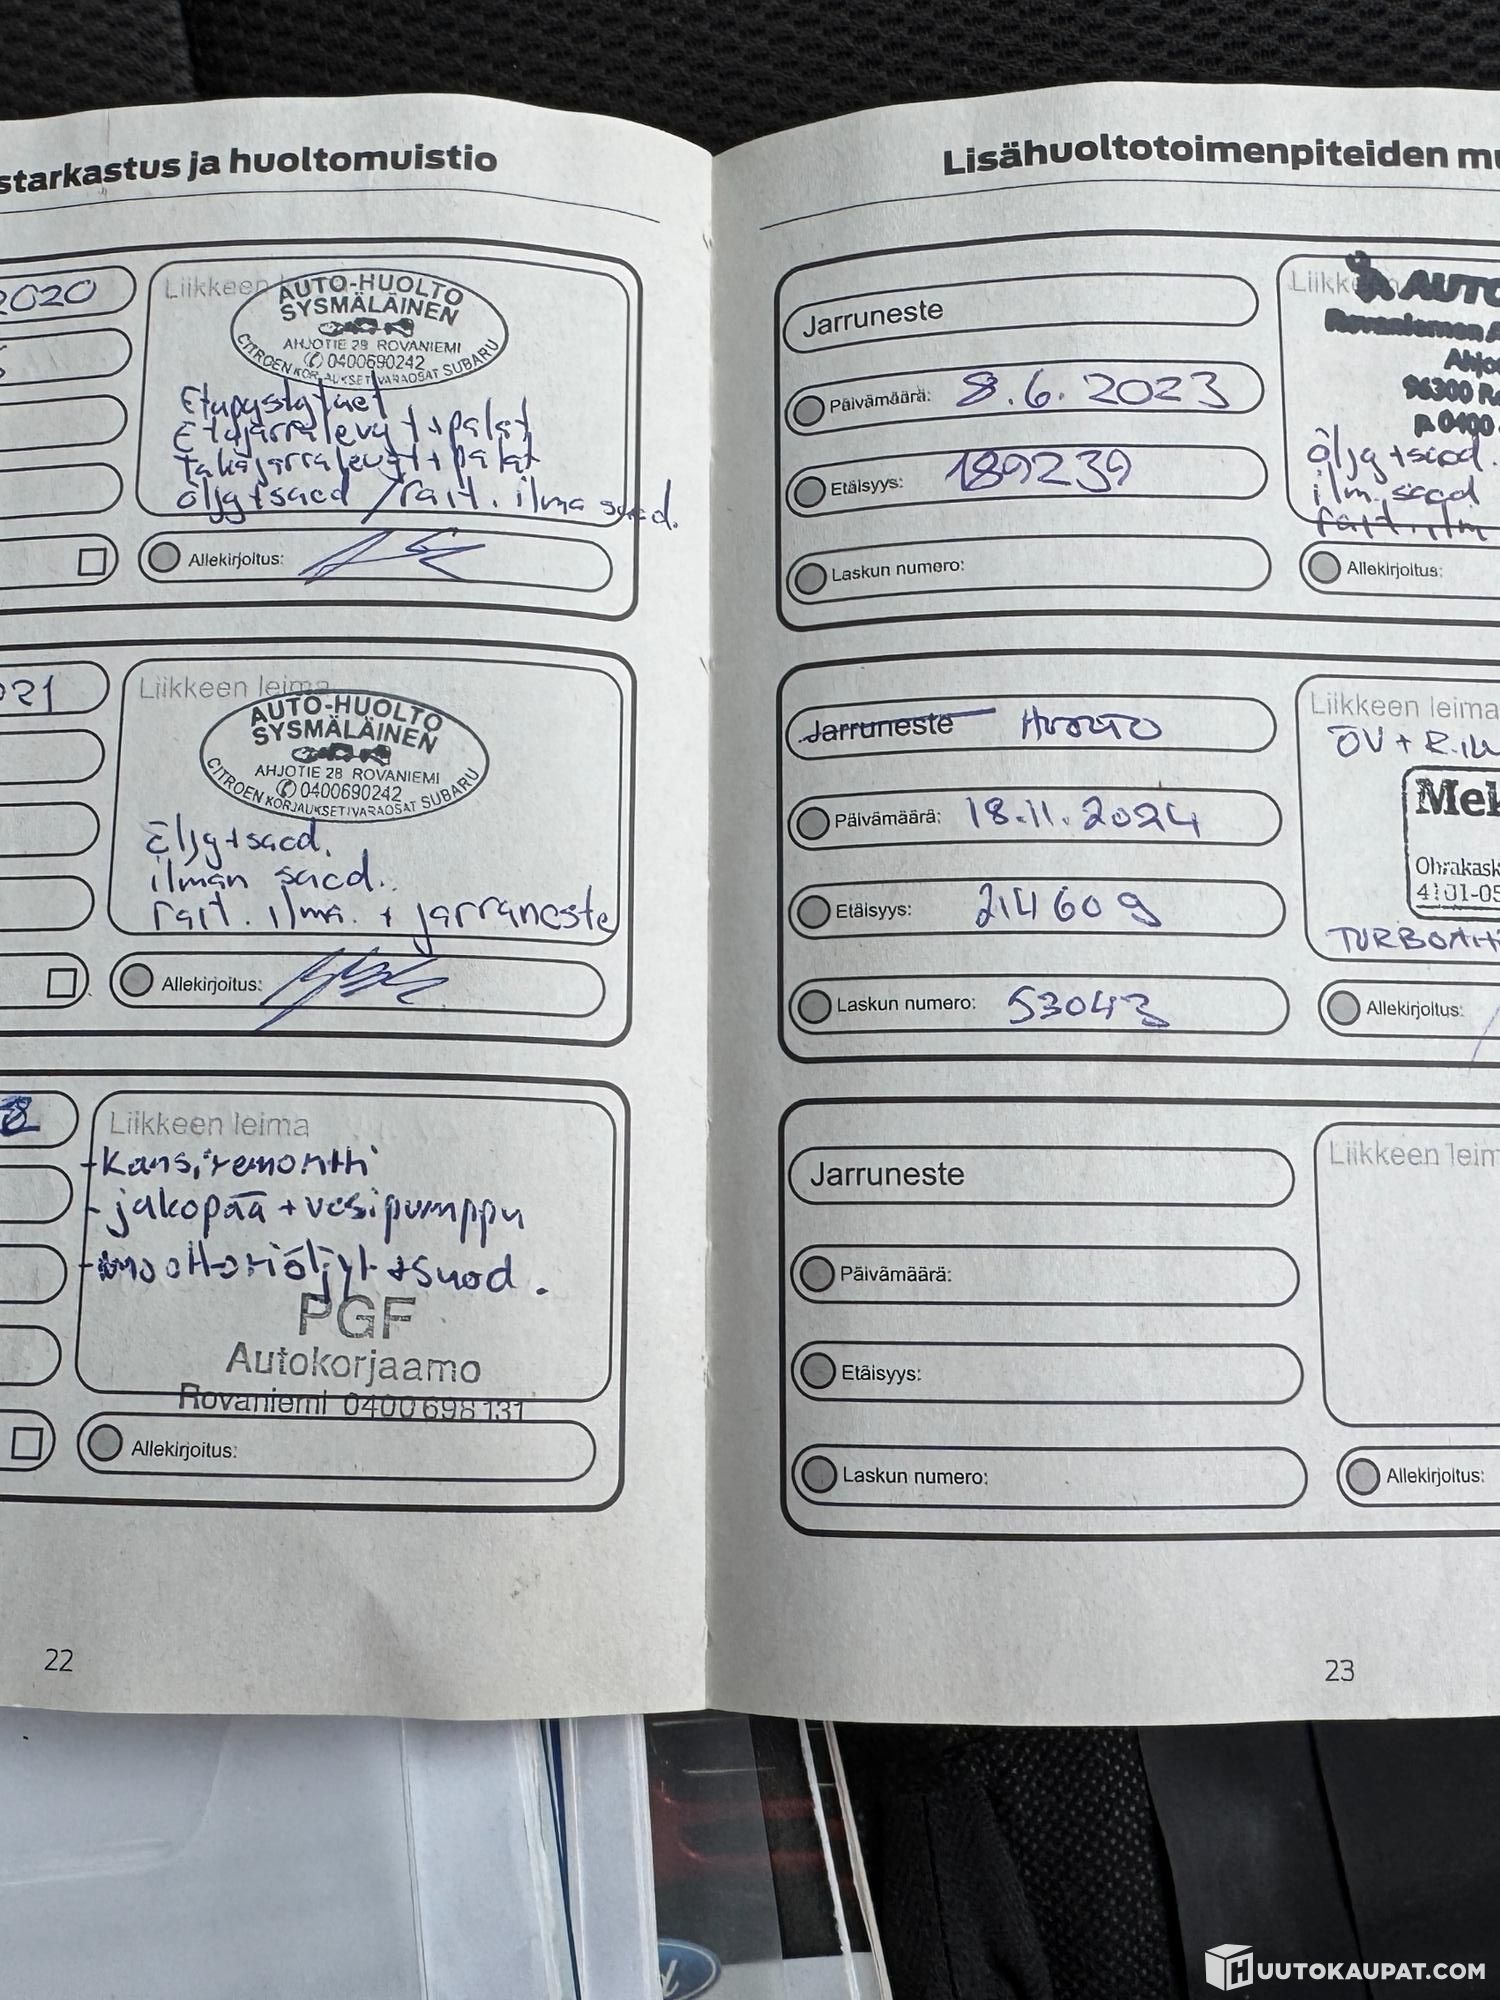 starkastus ja huoltomuistio
2020
Liikkeen
AUTO-HUOLTO
SYSMÄLÄINEN
AHJOTIE 28 ROVANIEMI
0400690242
CITROEN KORJAUKSET/VARAOSAT SUBARU
Etujarralevyt + palat
takajarralevyt + palat
öljy + suod / rait. ilma suod.
Allekirjoitus:
021
Liikkeen leima
AUTO-HUOLTO
SYSMÄLÄINEN
AHJOTIE 28 ROVANIEMI
0400690242
CITROEN KORJAUKSET/VARAOSAT SUBARU
öljy + suod.
ilman suod.
rait. ilma. + jarraneste
Allekirjoitus:
Liikkeen leima
- Kansiremontti
- jakopää + vesipumppu
- moottoriöljyt + suod.
PGF
Autokorjaamo
Rovaniemi 0400 698 131
Allekirjoitus:
22
Lisähuoltotoimenpiteiden mu
Jarruneste
Päivämäärä: 8.6.2023
Etäisyys: 189239
Laskun numero:
Liikk
AUTO
Rovaniemen A
Ahjo
96300 R
p. 0400
öljy + suod.
ilm. suod
rait. ilm
Allekirjoitus:
Jarruneste HUOLTO
Päivämäärä: 18.11.2024
Etäisyys: 214609
Laskun numero: 53043
Liikkeen leima
ÖV + R.
Mek
Ohrakask
4101-05
Allekirjoitus:
Jarruneste
Päivämäärä:
Etäisyys:
Laskun numero:
Liikkeen leim
Allekirjoitus:
23
HUUTOKAUPAT.COM